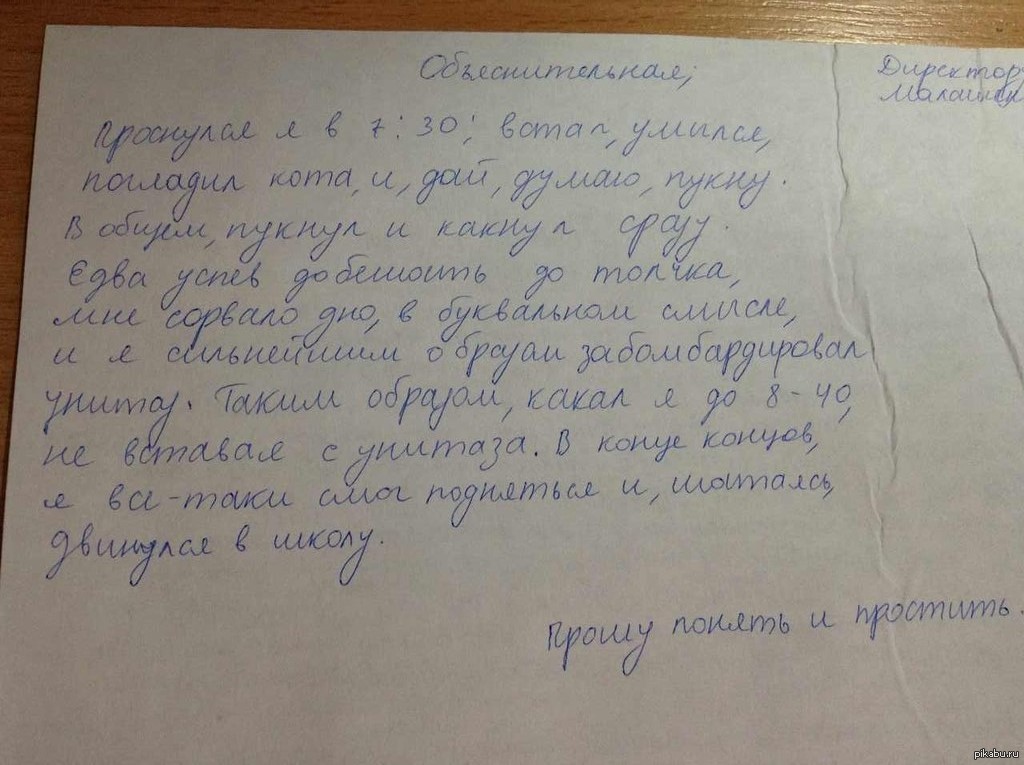 Объяснительная;
Директор
Проснулся я в 7:30; встал, умылся,
погладил кота, и, дай, думаю, пукну.
В общем, пукнул и какнул сразу.
Едва успев добежать до толчка,
мне сорвало дно, в буквальном смысле,
и я сильнейшим образом забомбардировал
унитаз. Таким образом, какал я до 8-40,
не вставая с унитаза. В конце концов,
я все-таки смог подняться и, шатаясь,
двинулся в школу.
Прошу понять и простить.
pikabu.ru